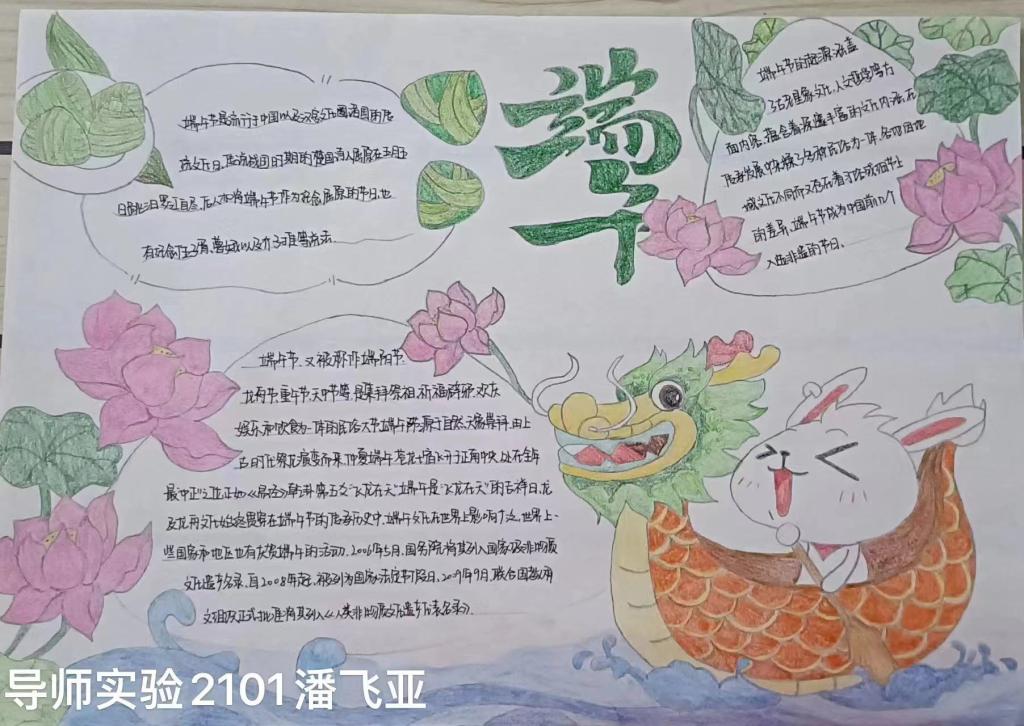 端午
端午节是流行于中国以及汉字文化圈诸国的传
统文化日,传说战国时期的楚国诗人屈原在五月五
日跳汨罗江自尽,后人亦将端午节作为纪念屈原的节日,也
有纪念伍子胥、曹娥以及介子推等说法.
端午节的起源,涵盖
了古老星象文化、人文哲学等方
面内容,蕴含着深邃丰富的文化内涵,在
传承发展中杂揉了多种民俗为一体,各地因地
域文化不同而又存在着习俗或细节上
的差异,端午节成为中国首个
入选非遗的节日.
端午节,又被称作端阳节、
龙舟节、重午节、天中节等,是集拜祭祖、祈福辟邪、欢庆
娱乐和饮食为一体的民俗大节,端午源于自然天象崇拜,由上
古时代祭龙演变而来,仲夏端午,苍龙七宿飞升于正南中央,处在全年
最"中正"之位,正如《易经》乾卦第五爻"飞龙在天",端午是"飞龙在天"的吉祥日,龙
及龙舟文化始终贯穿在端午节的传承历史中,端午文化在世界上影响广泛,世界上一
些国家和地区也有庆贺端午的活动,2006年5月,国务院将其列入国家级非物质
文化遗产名录,自2008年起,被列为国家法定节假日,2009年9月,联合国教科
文组织正式批准将其列入《人类非物质文化遗产代表名录》.
导师实验2101潘飞亚